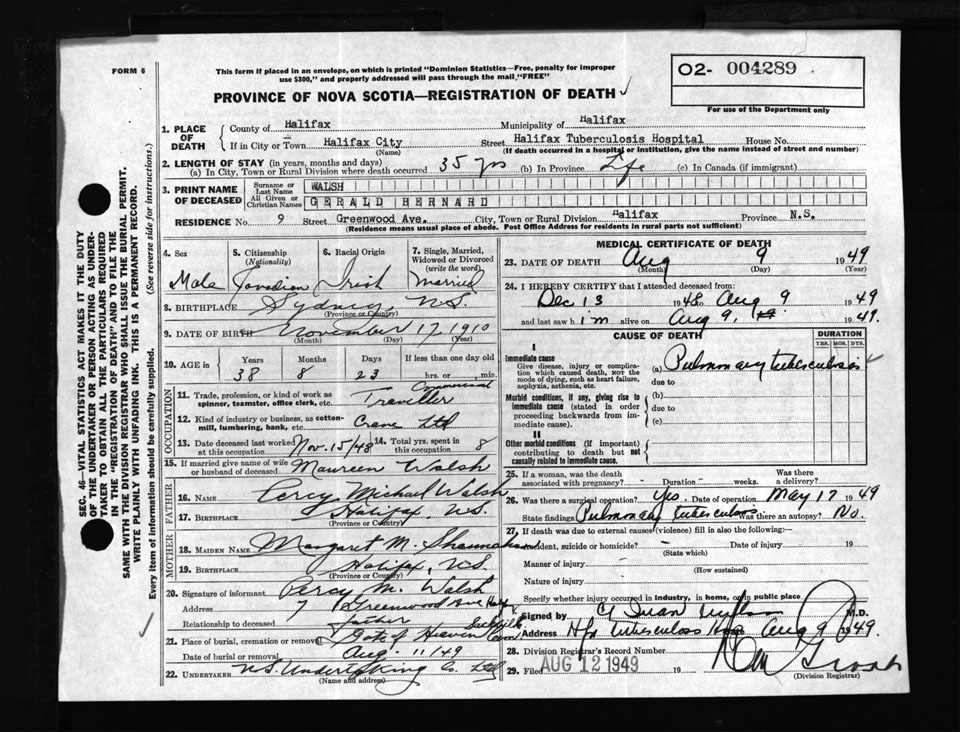 FORM 6
This form if placed in an envelope, on which is printed "Dominion Statistics—Free, penalty for improper
use $300," and properly addressed will pass through the mail "FREE"
O2- 004289
For use of the Department only
PROVINCE OF NOVA SCOTIA—REGISTRATION OF DEATH
1. PLACE OF DEATH
County of Halifax Municipality of Halifax
If in City or Town Halifax City (Name) Street Halifax Tuberculosis Hospital House No.
(If death occurred in a hospital or institution, give the name instead of street and number)
2. LENGTH OF STAY (in years, months and days)
(a) In City, Town or Rural Division where death occurred 35 yrs (b) In Province Life (c) In Canada (if immigrant)
3. PRINT NAME OF DECEASED
Surname or Last Name WALSH
All Given or Christian Names GERALD BERNARD
RESIDENCE No. 9 Street Greenwood Ave. City, Town or Rural Division Halifax Province N.S.
(Residence means usual place of abode. Post Office Address for residents in rural parts not sufficient)
4. Sex Male
5. Citizenship (Nationality) Canadian
6. Racial Origin Irish
7. Single, Married, Widowed or Divorced (write the word) Married
8. BIRTHPLACE Sydney, N.S.
(Province or Country)
9. DATE OF BIRTH November 17, 1910
(Month) (Day) (Year)
10. AGE in Years 38 Months 8 Days 23 If less than one day old hrs. or min.
OCCUPATION
11. Trade, profession, or kind of work as spinner, teamster, office clerk, etc. Commercial Traveller
12. Kind of industry or business, as cotton-mill, lumbering, bank, etc. Crane Ltd
13. Date deceased last worked at this occupation Nov. 15/48 14. Total yrs. spent in this occupation 8
15. If married give name of wife or husband of deceased Maureen Walsh
FATHER
16. NAME Percy Michael Walsh
17. BIRTHPLACE Halifax N.S.
(Province or Country)
MOTHER
18. MAIDEN NAME Margaret M. Shannahan
19. BIRTHPLACE Halifax, N.S.
(Province or Country)
20. Signature of informant Percy M. Walsh
Address Greenwood Ave Halifax
Relationship to deceased father
21. Place of burial, cremation or removal Gate of Heaven Cem Sackville
Date of burial or removal Aug. 11/49
22. UNDERTAKER N.S. Undertaking Co. Ltd
(Name and address)
MEDICAL CERTIFICATE OF DEATH
23. DATE OF DEATH Aug 9 1949
(Month) (Day) (Year)
24. I HEREBY CERTIFY that I attended deceased from:
Dec 13 1948 to Aug 9 1949
and last saw him alive on Aug 9, 1949.
CAUSE OF DEATH
DURATION
YRS. MOS. DYS.
I
Immediate cause
Give disease, injury or complication which caused death, NOT the mode of dying, such as heart failure, asphyxia, asthenia, etc.
(a) Pulmonary tuberculosis
due to
Morbid conditions, if any, giving rise to immediate cause (stated in order proceeding backwards from immediate cause)
(b)
due to
(c)
II
Other morbid conditions (if important) contributing to death but not causally related to immediate cause.
25. If a woman, was the death associated with pregnancy? - Duration - weeks. Was there a delivery? -
26. Was there a surgical operation? Yes. Date of operation May 17 1949
State findings Pulmonary tuberculosis Was there an autopsy? No.
27. If death was due to external causes (violence) fill in also the following:—
Accident, suicide or homicide? - Date of injury 19
(State which)
Manner of injury
(How sustained)
Nature of injury
Specify whether injury occurred in industry, in home, or in public place
Signed by M.D.
Address Hfx Tuberculosis Hosp Aug 9 1949.
28. Division Registrar's Record Number
29. Filed AUG 12 1949 19
(Division Registrar)
SEC. 46—VITAL STATISTICS ACT MAKES IT THE DUTY
OF THE UNDERTAKER OR PERSON ACTING AS UNDER-
TAKER TO OBTAIN ALL THE PARTICULARS REQUIRED
IN THE "REGISTRATION OF DEATH" AND TO FILE THE
SAME WITH THE DIVISION REGISTRAR WHO SHALL ISSUE THE BURIAL PERMIT.
WRITE PLAINLY WITH UNFADING INK. THIS IS A PERMANENT RECORD.
Every item of information should be carefully supplied. (See reverse side for instructions.)